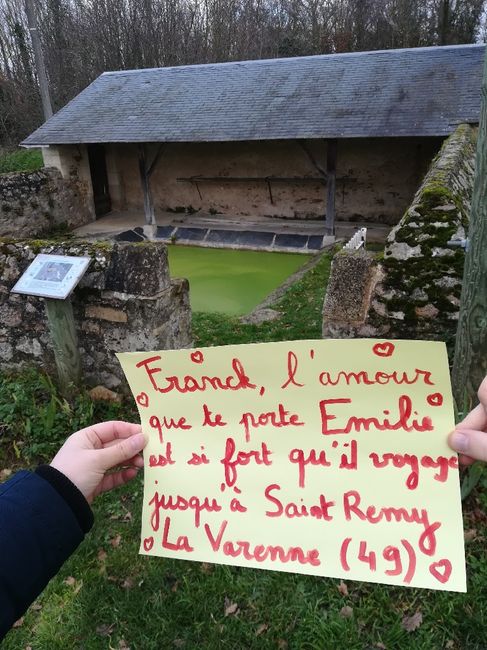 Franck, l'amour
que te porte Emilie
est si fort qu'il voyage
jusqu'à Saint Remy
La Varenne (49)